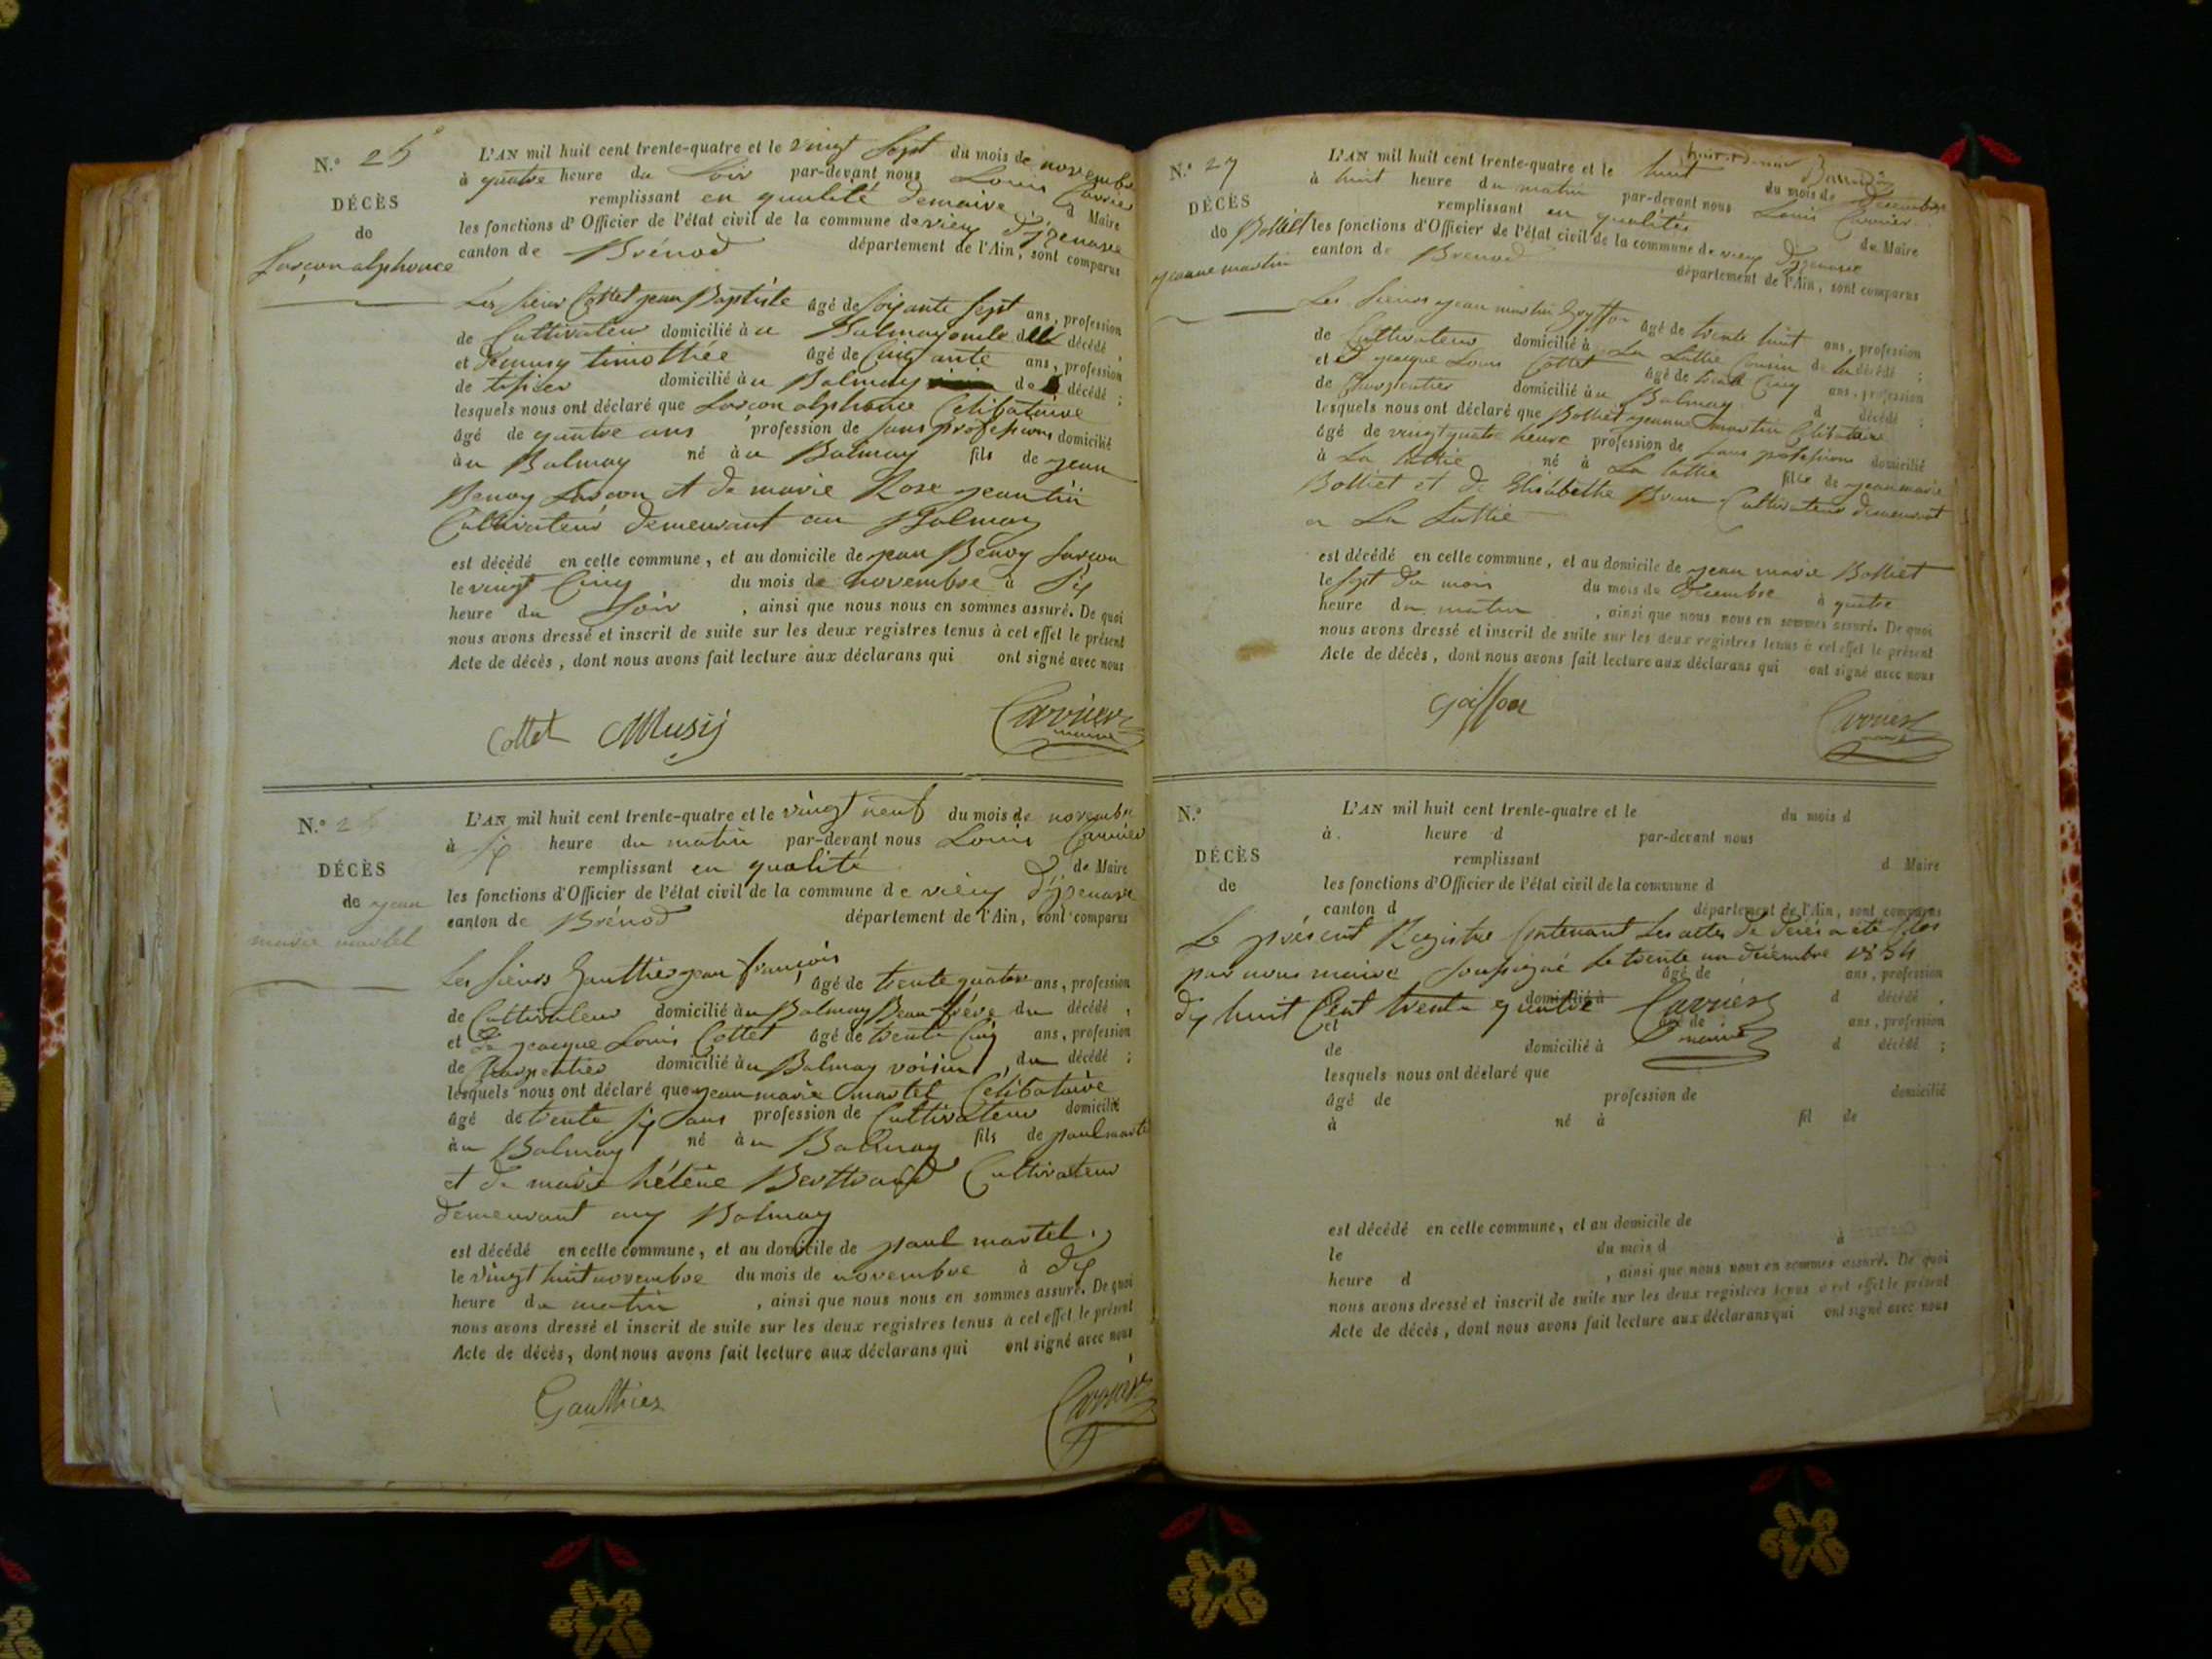 N.º 25
DÉCÈS
de
Lorçon alphonce
L'AN mil huit cent trente-quatre et le vingt sept du mois de novembre
à quatre heure du Soir par-devant nous Louis Carrier
remplissant en qualité de maire d Maire
les fonctions d'Officier de l'état civil de la commune de vieu d'izenave
canton de Brénod département de l'Ain, sont comparus
Les sieurs Cottet jean Baptiste âgé de soixante sept ans, profession
de Cultivateur domicilié à u Balmay oncle d décédé,
et timothée âgé de Cinquante ans, profession
de tissier domicilié à u Balmay de décédé;
lesquels nous ont déclaré que Lorçon alphonce Celibataire
âgé de quatre ans profession de sans profession domicilié
à u Balmay né à u Balmay fils de jean
Benoy Lorçon et de marie Rose jeantin
Cultivateur demeurant au Balmay
est décédé en cette commune, et au domicile de jean Benoy Lorçon
le vingt Cinq du mois de novembre à six
heure du Soir, ainsi que nous nous en sommes assuré. De quoi
nous avons dressé et inscrit de suite sur les deux registres tenus à cet effet le présent
Acte de décès, dont nous avons fait lecture aux déclarans qui ont signé avec nous
Cottet Musy Carrier
maire
N.º 26
DÉCÈS
de jean
marie martel
L'AN mil huit cent trente-quatre et le vingt neuf du mois de novembre
à six heure du matin par-devant nous Louis Carrier
remplissant en qualité de Maire
les fonctions d'Officier de l'état civil de la commune de vieu d'izenave
canton de Brénod département de l'Ain, sont comparus
Les sieurs Gautthier jean françois âgé de trente quatre ans, profession
de Cultivateur domicilié à u Balmay Beau frère du décédé,
et jeacque Louis Cottet âgé de trente Cinq ans, profession
de Charpentier domicilié à u Balmay voisin du décédé;
lesquels nous ont déclaré que jean marie martel Celibataire
âgé de trente six ans profession de Cultivateur domicilié
à u Balmay né à u Balmay fils de paul martel
et de marie hélène Berttrand Cultivateur
demeurant au Balmay
est décédé en cette commune, et au domicile de paul martel
le vingt huit novembre du mois de novembre à dix
heure du matin, ainsi que nous nous en sommes assuré. De quoi
nous avons dressé et inscrit de suite sur les deux registres tenus à cet effet le présent
Acte de décès, dont nous avons fait lecture aux déclarans qui ont signé avec nous
Gautthier Carrier
N.º 27
DÉCÈS
de Bolliet
jeanne martin
L'AN mil huit cent trente-quatre et le huit du mois de Décembre
à huit heure du matin par-devant nous Louis Carrier
remplissant en qualité de Maire
les fonctions d'Officier de l'état civil de la commune de vieu d'izenave
canton de Brenod département de l'Ain, sont comparus
Les sieurs jean martin âgé de trente huit ans, profession
de Cultivateur domicilié à La Cousin de la décédé;
et jeacque Louis Cottet âgé de trente Cinq ans, profession
de Charpentier domicilié à u Balmay d décédé;
lesquels nous ont déclaré que Bolliet jeanne martin Célibataire
âgé de vingt quatre heure profession de sans profession domicilié
à La né à La fille de jean marie
Bolliet et de Elisabethe Brun Cultivateur demeurant
a La
est décédé en cette commune, et au domicile de jean marie Bolliet
le sept du mois du mois de Décembre à quatre
heure du matin, ainsi que nous nous en sommes assuré. De quoi
nous avons dressé et inscrit de suite sur les deux registres tenus à cet effet le présent
Acte de décès, dont nous avons fait lecture aux déclarans qui ont signé avec nous
goiffon Carrier
maire
N.º
DÉCÈS
de
L'AN mil huit cent trente-quatre et le du mois d
à heure d par-devant nous
remplissant d Maire
les fonctions d'Officier de l'état civil de la commune d
canton d département de l'Ain, sont comparus
Le présent Registre Contenant Les actes de décés a été Clos
par nous maire soussigné le trente un décembre 1834
âgé de ans, profession
dix huit Cent trente quatre Carrier
maire
domicilié à d décédé,
et âgé de ans, profession
de domicilié à d décédé;
lesquels nous ont déclaré que
âgé de profession de domicilié
à né à fil de
est décédé en cette commune, et au domicile de
le du mois d à
heure d, ainsi que nous nous en sommes assuré. De quoi
nous avons dressé et inscrit de suite sur les deux registres tenus à cet effet le présent
Acte de décès, dont nous avons fait lecture aux déclarans qui ont signé avec nous